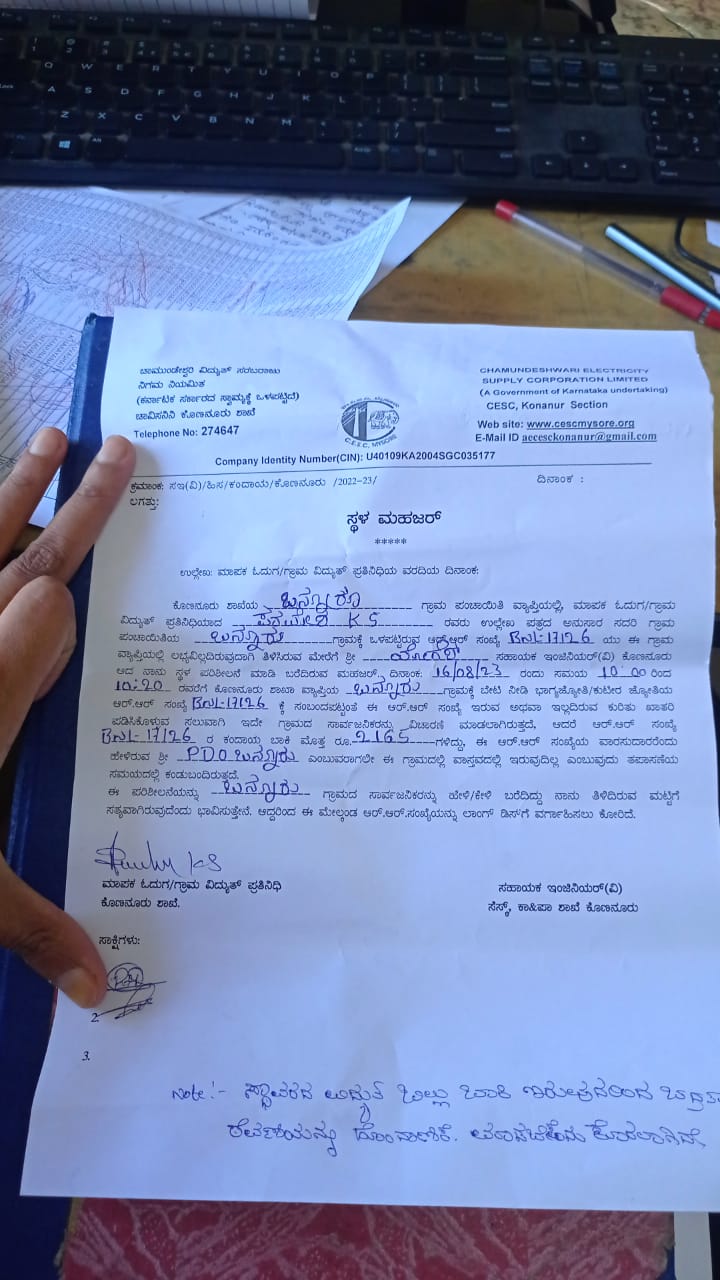 ಚಾಮುಂಡೇಶ್ವರಿ ವಿದ್ಯುತ್ ಸರಬರಾಜು
ನಿಗಮ ನಿಯಮಿತ
(ಕರ್ನಾಟಕ ಸರ್ಕಾರದ ಸ್ವಾಮ್ಯಕ್ಕೆ ಒಳಪಟ್ಟಿದೆ)
ಚಾವಿಸನಿನಿ ಕೊಣನೂರು ಶಾಖೆ
Telephone No: 274647
CHAMUNDESHWARI ELECTRICITY
SUPPLY CORPORATION LIMITED
(A Government of Karnataka undertaking)
CESC, Konanur Section
Web site: www.cescmysore.org
E-Mail ID aeecesckonanur@gmail.com
C.E.S.C, MYSORE
Company Identity Number(CIN): U40109KA2004SGC035177
ಕ್ರಮಾಂಕ: ಸಇ(ವಿ)/ಹಿಸ/ಕಂದಾಯ/ಕೊಣನೂರು /2022-23/ ದಿನಾಂಕ :
ಲಗತ್ತು:
ಸ್ಥಳ ಮಹಜರ್
*****
ಉಲ್ಲೇಖ: ಮಾಪಕ ಓದುಗ/ಗ್ರಾಮ ವಿದ್ಯುತ್ ಪ್ರತಿನಿಧಿಯ ವರದಿಯ ದಿನಾಂಕ:
ಕೊಣನೂರು ಶಾಖೆಯ ಬನ್ನೂರು ಗ್ರಾಮ ಪಂಚಾಯಿತಿ ವ್ಯಾಪ್ತಿಯಲ್ಲಿ, ಮಾಪಕ ಓದುಗ/ಗ್ರಾಮ
ವಿದ್ಯುತ್ ಪ್ರತಿನಿಧಿಯಾದ K S ರವರು ಉಲ್ಲೇಖ ಪತ್ರದ ಅನುಸಾರ ಸದರಿ ಗ್ರಾಮ
ಪಂಚಾಯಿತಿಯ ಬನ್ನೂರು ಗ್ರಾಮಕ್ಕೆ ಒಳಪಟ್ಟಿರುವ ಆರ್.ಆರ್ ಸಂಖ್ಯೆ BNL-17126 ಯು ಈ ಗ್ರಾಮ
ವ್ಯಾಪ್ತಿಯಲ್ಲಿ ಲಭ್ಯವಿಲ್ಲದಿರುವುದಾಗಿ ತಿಳಿಸಿರುವ ಮೇರೆಗೆ ಶ್ರೀ ಯೋಗೇಶ್ ಸಹಾಯಕ ಇಂಜಿನಿಯರ್(ವಿ) ಕೊಣನೂರು
ಆದ ನಾನು ಸ್ಥಳ ಪರಿಶೀಲನೆ ಮಾಡಿ ಬರೆದಿರುವ ಮಹಜರ್. ದಿನಾಂಕ: 16/08/23 ರಂದು ಸಮಯ 10:00 ರಿಂದ
10:20 ರವರೆಗೆ ಕೊಣನೂರು ಶಾಖಾ ವ್ಯಾಪ್ತಿಯ ಬನ್ನೂರು ಗ್ರಾಮಕ್ಕೆ ಬೇಟಿ ನೀಡಿ ಭಾಗ್ಯಜ್ಯೋತಿ/ಕುಟೀರ ಜ್ಯೋತಿಯ
ಆರ್.ಆರ್ ಸಂಖ್ಯೆ BNL-17126 ಕ್ಕೆ ಸಂಬಂದಪಟ್ಟಂತೆ ಈ ಆರ್.ಆರ್ ಸಂಖ್ಯೆ ಇರುವ ಅಥವಾ ಇಲ್ಲದಿರುವ ಕುರಿತು ಖಾತರಿ
ಪಡಿಸಿಕೊಳ್ಳುವ ಸಲುವಾಗಿ ಇದೇ ಗ್ರಾಮದ ಸಾರ್ವಜನಿಕರನ್ನು ವಿಚಾರಣೆ ಮಾಡಲಾಗಿರುತ್ತದೆ, ಆದರೆ ಆರ್.ಆರ್ ಸಂಖ್ಯೆ
BNL-17126 ರ ಕಂದಾಯ ಬಾಕಿ ಮೊತ್ತ ರೂ. 2165 ಗಳಿದ್ದು, ಈ ಆರ್.ಆರ್ ಸಂಖ್ಯೆಯ ವಾರಸುದಾರರೆಂದು
ಹೇಳಿರುವ ಶ್ರೀ P.D.O ಬನ್ನೂರು ಎಂಬುವರಾಗಲೀ ಈ ಗ್ರಾಮದಲ್ಲಿ ವಾಸ್ತವದಲ್ಲಿ ಇರುವುದಿಲ್ಲ ಎಂಬುವುದು ತಪಾಸಣೆಯ
ಸಮಯದಲ್ಲಿ ಕಂಡುಬಂದಿರುತ್ತದೆ.
ಈ ಪರಿಶೀಲನೆಯನ್ನು ಬನ್ನೂರು ಗ್ರಾಮದ ಸಾರ್ವಜನಿಕರನ್ನು ಹೇಳಿ/ಕೇಳಿ ಬರೆದಿದ್ದು ನಾನು ತಿಳಿದಿರುವ ಮಟ್ಟಿಗೆ
ಸತ್ಯವಾಗಿರುವುದೆಂದು ಭಾವಿಸುತ್ತೇನೆ. ಆದ್ದರಿಂದ ಈ ಮೇಲ್ಕಂಡ ಆರ್.ಆರ್.ಸಂಖ್ಯೆಯನ್ನು ಲಾಂಗ್ ಡಿಸ್‌ಗೆ ವರ್ಗಾಹಿಸಲು ಕೋರಿದೆ.
ಮಾಪಕ ಓದುಗ/ಗ್ರಾಮ ವಿದ್ಯುತ್ ಪ್ರತಿನಿಧಿ
ಕೊಣನೂರು ಶಾಖೆ.
ಸಹಾಯಕ ಇಂಜಿನಿಯರ್(ವಿ)
ಸೆಸ್ಕ್, ಕಾ&ಪಾ ಶಾಖೆ ಕೊಣನೂರು
ಸಾಕ್ಷಿಗಳು:
2.
3.
Note:- ಸ್ಥಾವರದ ವಿದ್ಯುತ್ ಬಿಲ್ಲು ಬಾಕಿ ಇರುವುದರಿಂದ